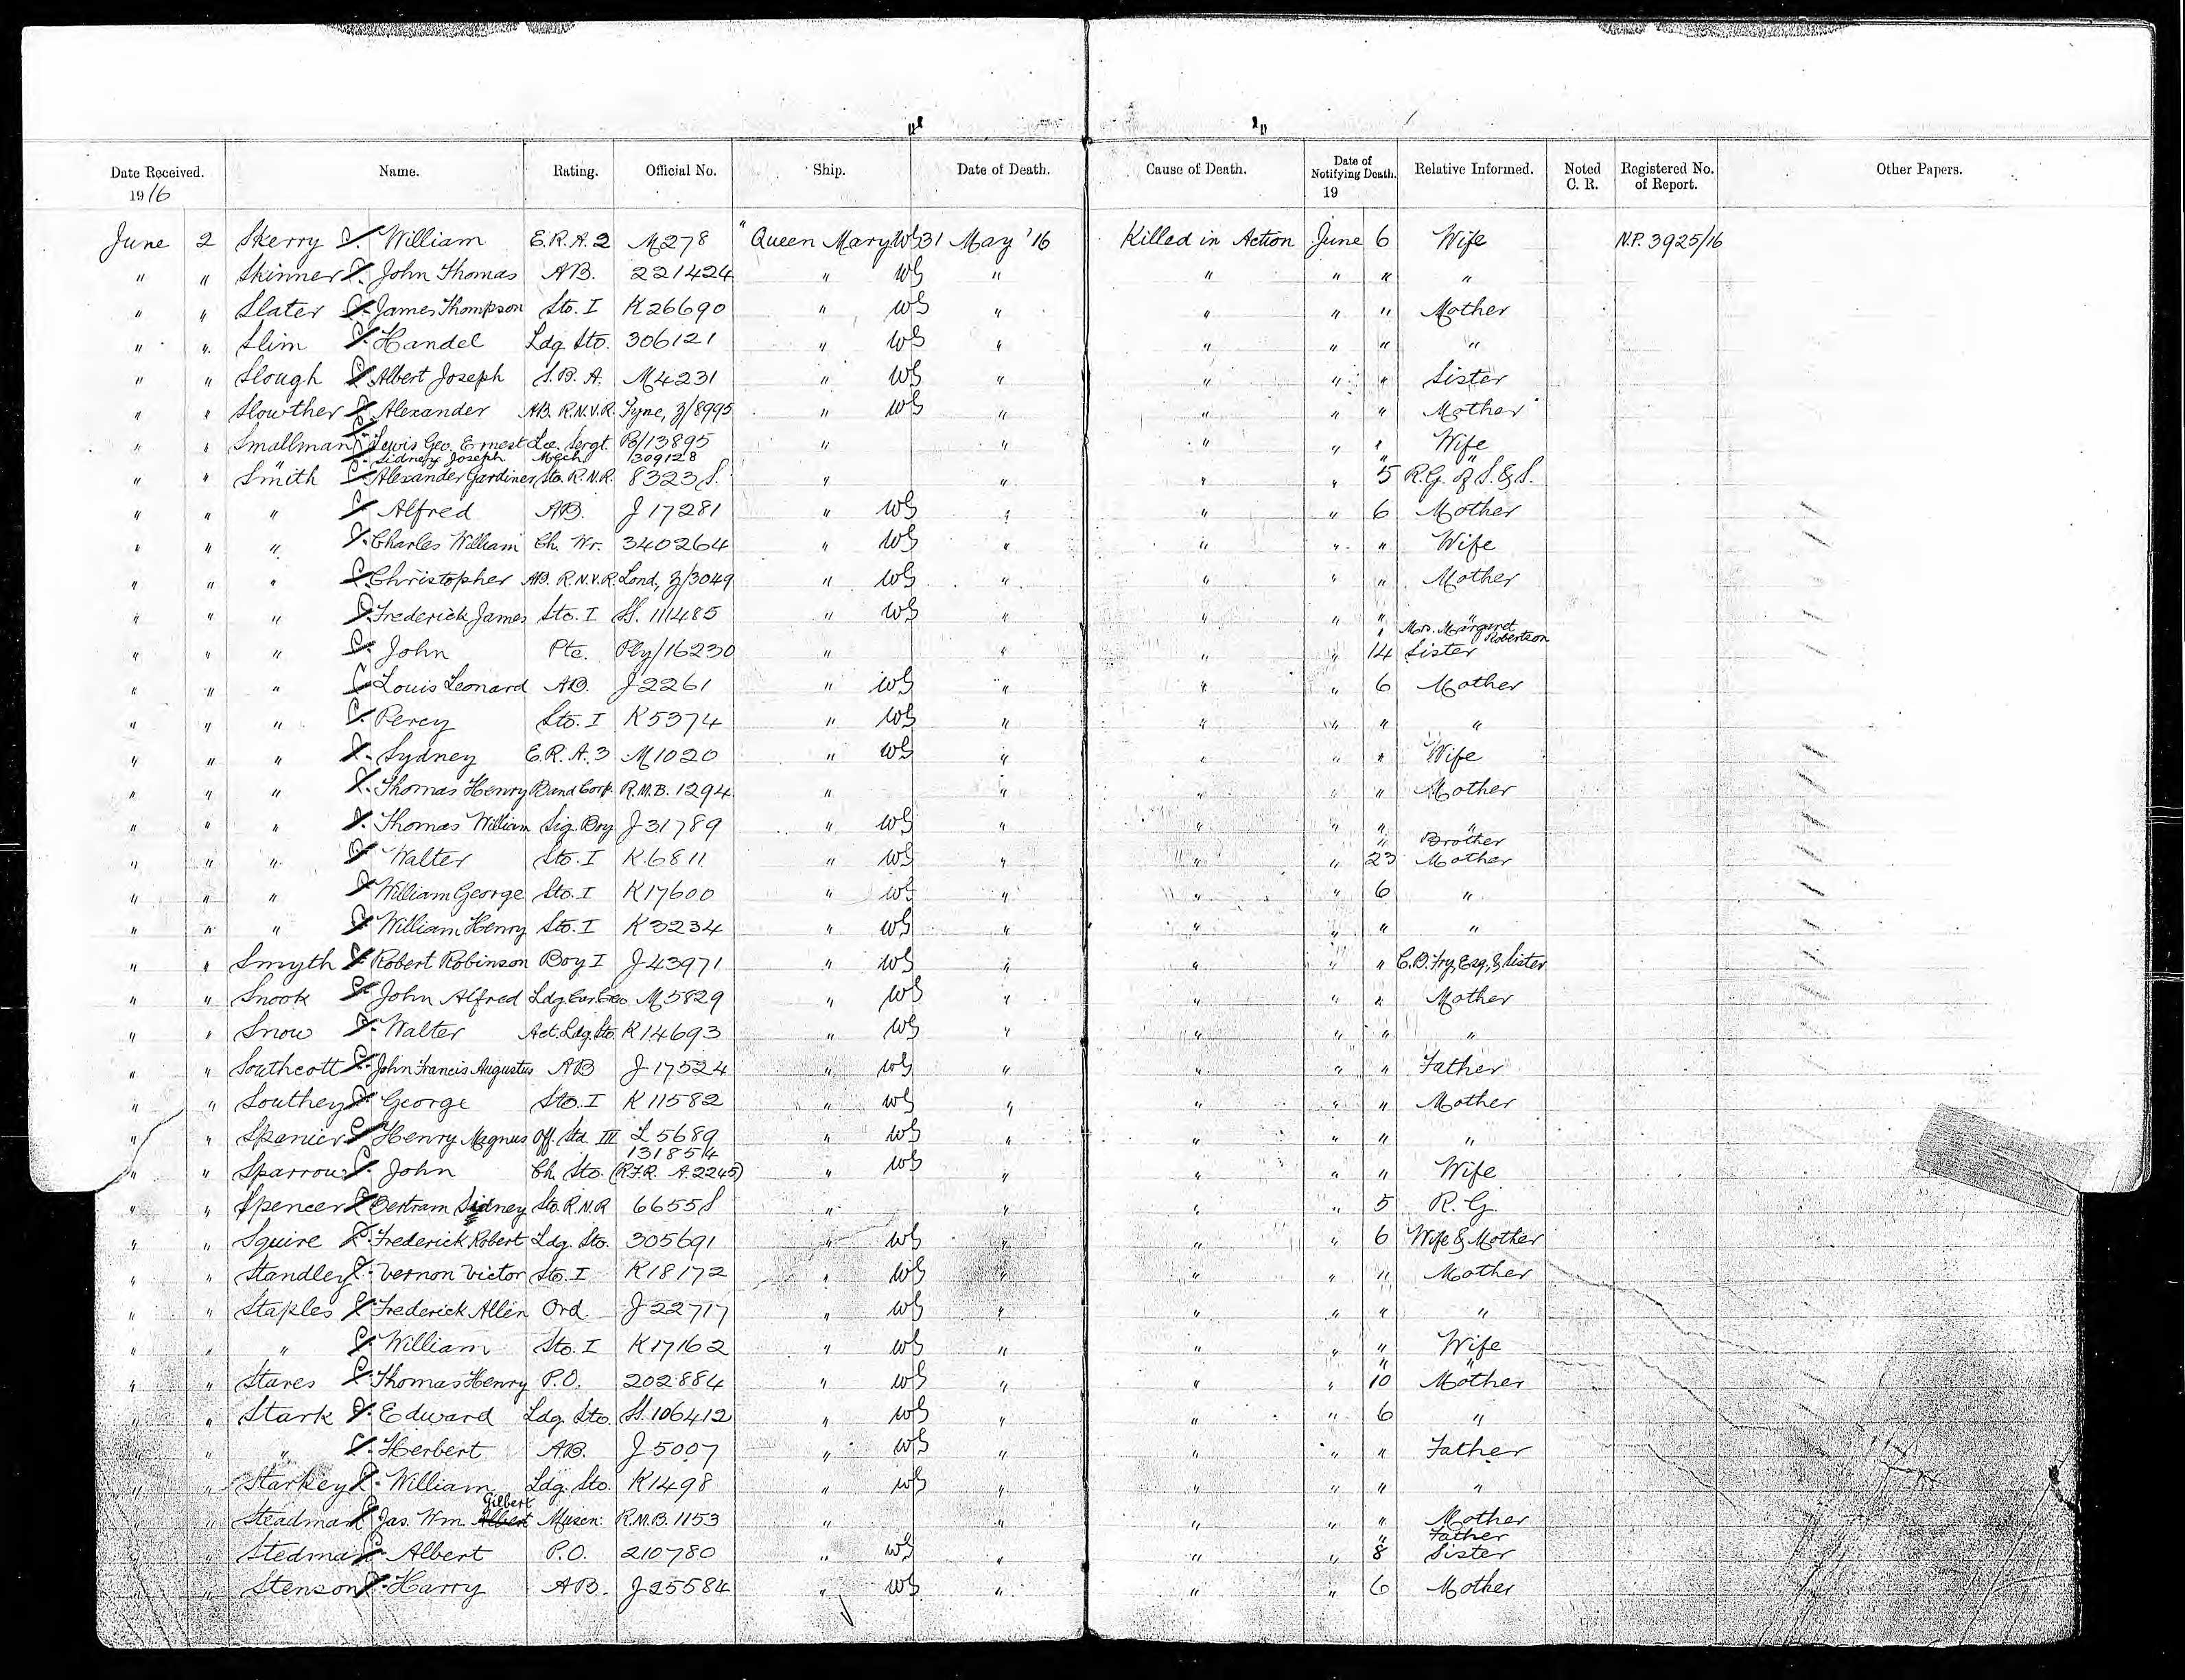 Date Received. Name. Rating. Official No. Ship. Date of Death. Cause of Death. Date of Notifying Death. Relative Informed. Noted C. R. Registered No. of Report. Other Papers.
1916 19
June 2 Skerry William E.R.A. 2 M278 "Queen Mary WG 31 May '16 Killed in Action June 6 Wife N.P. 3925/16
" " Skinner John Thomas AB. 221424 " WG " " " " "
" " Slater James Thompson Sto. I K26690 " WG " " " " Mother
" " Slim Handel Ldg. Sto. 306121 " WG " " " " "
" " Slough Albert Joseph S.B.A. M4231 " WG " " " " Sister
" " Slowther Alexander AB. R.N.V.R. Tyne, Z/8995 " WG " " " " Mother
" " Smallman Lewis Geo. Ernest Lce. Sergt. Po/13895 " " " " " Wife
" Sidney Joseph Mech. 309128 " "
" " Smith Alexander Gardiner Sto. R.N.R. 8323 S. " " " " 5 R.G. of S. & S.
" " " Alfred AB. J17281 " WG " " " 6 Mother
" " " Charles William Ch. Wr. 340264 " WG " " " " Wife
" " " Christopher AB. R.N.V.R. Lond, Z/3049 " WG " " " " Mother
" " " Frederick James Sto. I SS. 111485 " WG " " " " "
" Mrs. Margaret Robertson
" " " John Pte. Ply/16230 " " " " 14 Sister
" " " Louis Leonard AB. J2261 " WG " " " 6 Mother
" " " Percy Sto. I K5374 " WG " " " " "
" " " Sydney E.R.A. 3 M1020 " WG " " " " Wife
" " " Thomas Henry Band Corp. R.M.B. 1294 " " " " " Mother
" " " Thomas William Sig. Boy J31789 " WG " " " " "
" Brother
" " " Walter Sto. I K6811 " WG " " " 23 Mother
" " " William George Sto. I K17600 " WG " " " 6 "
" " " William Henry Sto. I K3234 " WG " " " " "
" " Smyth Robert Robinson Boy I J43971 " WG " " " " C.B. Fry, Esq., & Sister
" " Snook John Alfred Ldg. Car. Crew M5829 " WG " " " " Mother
" " Snow Walter Act. Ldg. Sto. K14693 " WG " " " " "
" " Southcott John Francis Augustus AB J17524 " WG " " " " Father
" " Southey George Sto. I K11582 " WG " " " " Mother
" " Spanier Henry Magnus Off. Std. III L5689 " WG " " " " "
131854
" " Sparrow John Ch. Sto. (R.F.R. A.2245) " WG " " " " Wife
" " Spencer Bertram Sidney Sto. R.N.R 6655S " " " " 5 R.G.
" " Squire Frederick Robert Ldg. Sto. 305691 " WG " " " 6 Wife & Mother
" " Standley Vernon Victor Sto. I K18172 " WG " " " " Mother
" " Staples Frederick Allen Ord. J22717 " WG " " " " "
" " " William Sto. I K17162 " WG " " " " Wife
" "
" " Stares Thomas Henry P.O. 202884 " WG " " " 10 Mother
" " Stark Edward Ldg. Sto. SS. 106412 " WG " " " 6 "
" " " Herbert AB. J5007 " WG " " " " Father
" " Starkey William Ldg. Sto. K1498 " WG " " " " "
Gilbert
" " Steadman Jas. Wm. Albert Muscn. R.M.B. 1153 " " " " " Mother
" Father
" " Stedman Albert P.O. 210780 " WG " " " 8 Sister
" " Stenson Harry AB. J25584 " WG " " " 6 Mother